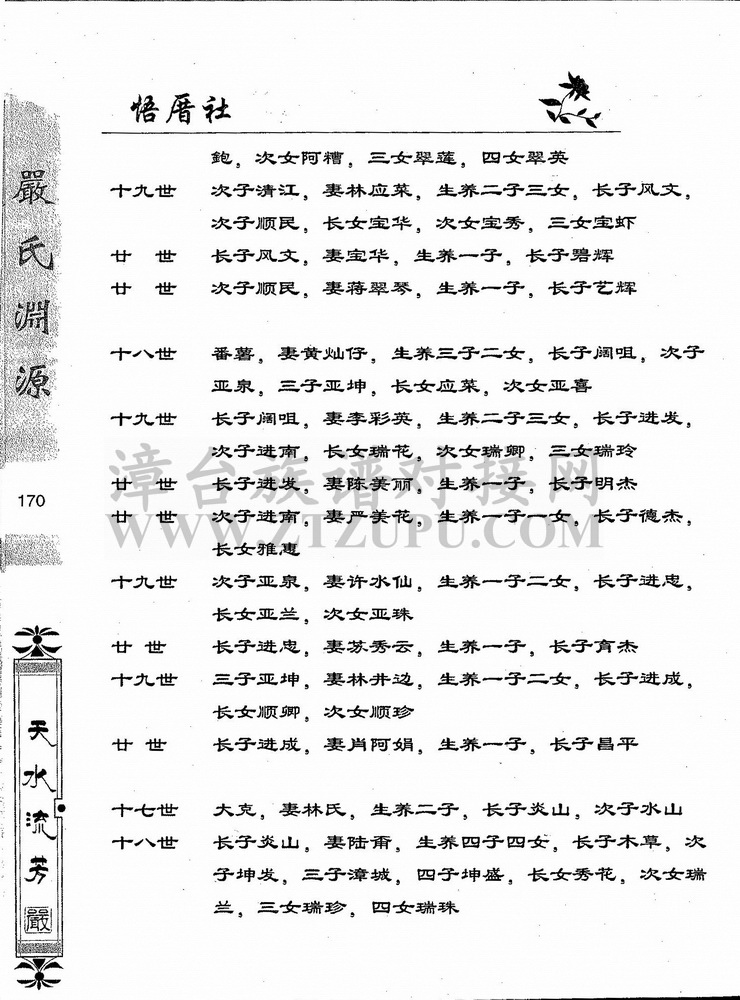 悟厝社
鉋，次女阿糟，三女翠莲，四女翠英
十九世 次子清江，妻林应菜，生养二子三女，长子风文，
次子顺民，长女宝华，次女宝秀，三女宝虾
廿 世 长子风文，妻宝华，生养一子，长子碧辉
廿 世 次子顺民，妻蒋翠琴，生养一子，长子艺辉
十八世 番薯，妻黄灿仔，生养三子二女，长子阔咀，次子
亚泉，三子亚坤，长女应菜，次女亚喜
十九世 长子阔咀，妻李彩英，生养二子三女，长子进发，
次子进南，长女瑞花，次女瑞卿，三女瑞玲
廿 世 长子进发，妻陈美丽，生养一子，长子明杰
廿 世 次子进南，妻严美花，生养一子一女，长子德杰，
长女雅惠
十九世 次子亚泉，妻许水仙，生养一子二女，长子进忠，
长女亚兰，次女亚珠
廿 世 长子进忠，妻苏秀云，生养一子，长子育杰
十九世 三子亚坤，妻林井边，生养一子二女，长子进成，
长女顺卿，次女顺珍
廿 世 长子进成，妻肖阿娟，生养一子，长子昌平
十七世 大克，妻林氏，生养二子，长子炎山，次子水山
十八世 长子炎山，妻陆甭，生养四子四女，长子木草，次
子坤发，三子漳城，四子坤盛，长女秀花，次女瑞
兰，三女瑞珍，四女瑞珠
嚴氏淵源
170
天水流芳
嚴
漳台族谱对接网
WWW.ZTZUPU.COM